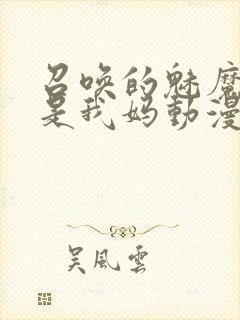 召唤的魅魔
是我妈動漫
吴風雲